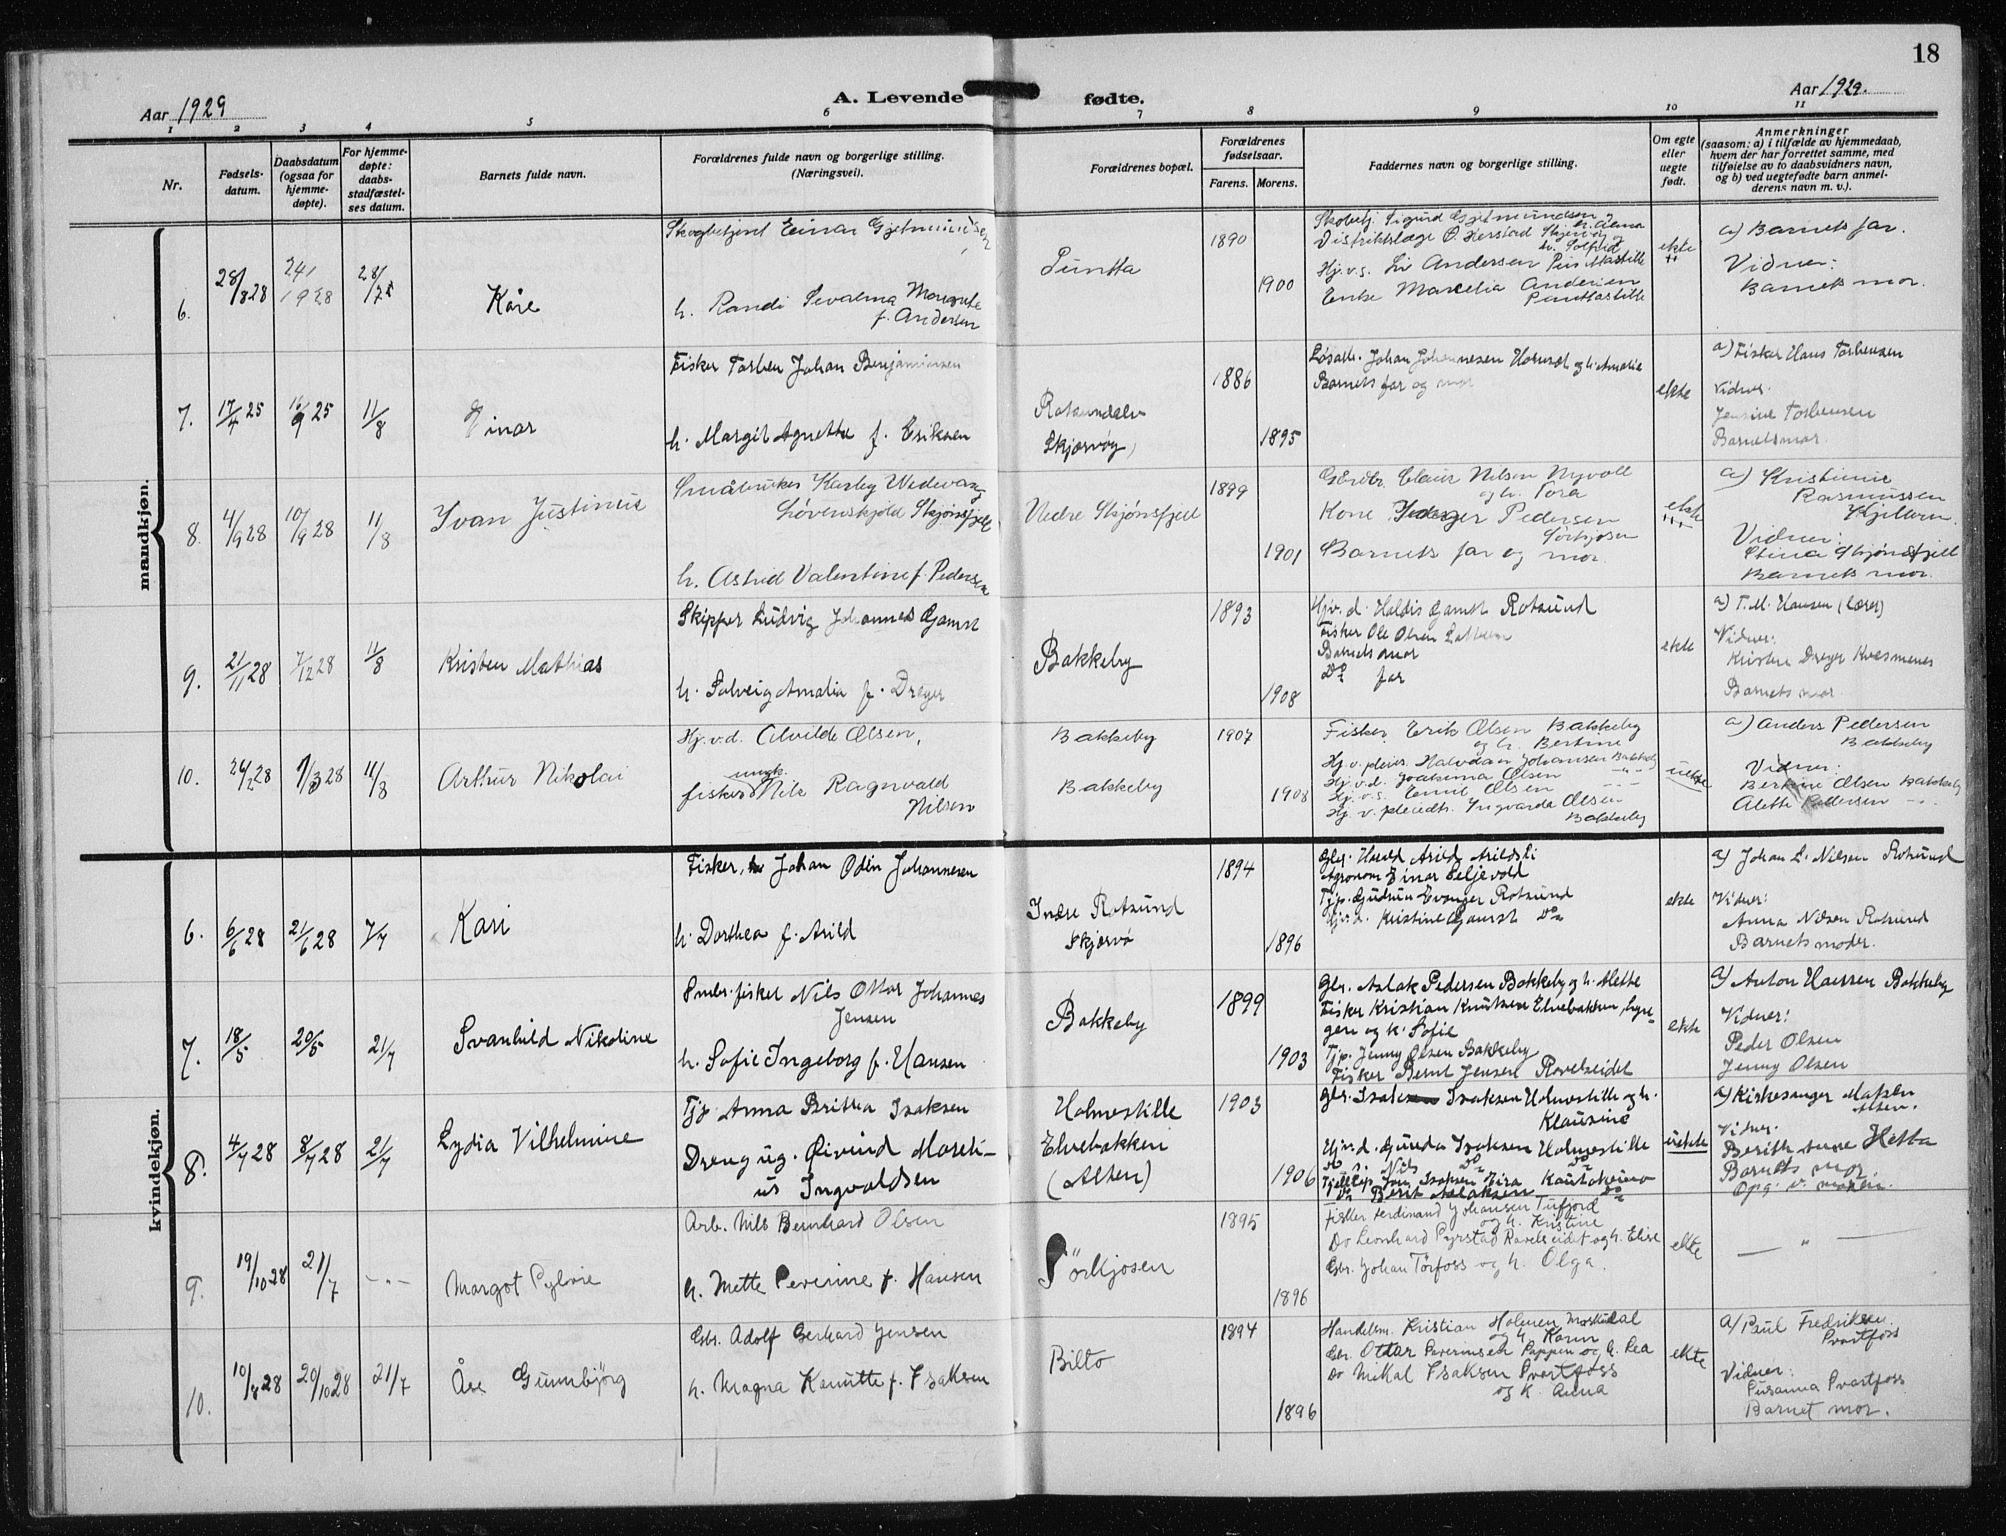 18
Aar 1929
A. Levende fødte.
Aar 1929.
1 2 3 4 5 6 7 8 9 10 11
Nr.
Fødsels-
datum.
Daabsdatum
(ogsaa for
hjemme-
døpte).
For hjemme-
døpte:
daabs-
stadfæstel-
ses datum.
Barnets fulde navn.
Forældrenes fulde navn og borgerlige stilling.
(Næringsvei).
Forældrenes bopæl.
Forældrenes
fødselsaar.
Farens. Morens.
Faddernes navn og borgerlige stilling.
Om egte
eller
uegte
født.
Anmerkninger
(saasom: a) i tilfælde av hjemmedaab,
hvem der har forrettet samme, med
tilføielse av to daabsvidners navn,
og b) ved uegtefødte barn anmel-
derens navn m. v.).
mandkjøn.
6.
28/8 28
Kåre
Skogbetjent Einar Gjetmundsen
h. Randi Sevalma Margrethe
f. Andersen
Puntta
1890
1900
Skobetj. Sigurd Gjetmundsen og
h. Alma
Distriktslæge O. Herstad Skjervøy og
h. Solfrid
Hj.v.s. Liv Andersen
Enke Marcelia Andersen
ekte
a) Barnets far.
Vidner:
Barnets mor.
7.
17/4 25
25
11/8
Einar
Fisker Torben Johan Benjaminsen
h. Margit Agnethe f. Eriksen
Rotsunddalen
Skjærvøy
1886
1895
Løsarb. Johan Johannesen og h. Amalie
Barnets far og mor
ekte
a) Fisker Hans Torbensen
Vidner.
Jensine Torbensen
Barnets mor.
8.
4/9 28
10/9 28
11/8
Ivan Justinus
Småbruker Harley Wedevang
Løvenskjold Skjønsfjell
h. Astrid Valentine f. Pedersen
Nedre Skjønsfjell
1899
1901
Gårdbr. Claus Nilsen Nyvoll
og h. Tora
Kone Pedersen
Sørkjosen
Barnets far og mor.
ekte
a) Kristianne
Rasmussen
Vidner:
Stina Skjønsfjell
Barnets mor.
9.
21/11 28
7/12 28
11/8
Kristen Mathias
Skipper Ludvig Johannes Gamst
h. Solveig Amalia f. Dreyer
Bakkeby
1893
1908
Hjv. d. Haldis Gamst Rotsund
Fisker Ole Olsen
Barnets mor
Do far
ekte
a) T. M. Hansen (Lærer)
Vidner:
Kristine Dreyer Kvesmenes
Barnets mor.
10.
26/2 28
1/3 28
11/8
Arthur Nikolai
Hj.v.d. Alvilde Olsen,
ungk.
fisker Nils Ragnvald
Nilsen
Bakkeby
Bakkeby
1907
1908
Fisker Erik Olsen Bakkeby
og h. Bertine
Hj. v. pleies. Halvdan Johansen Bakkeby
Hj.v.d. Joakima Olsen - " -
Hj. v. s. Emil Olsen
Hj. v. pleiedt. Ingvarda Olsen
Bakkeby
uekte
a) Anders Pedersen
Bakkeby
Vidner:
Bertine Olsen Bakkeby
Alette Pedersen - " -
kvindekjøn.
6.
6/6 28
21/6 28
7/7
Kari
Fisker, Johan Odin Johannesen
h. Dorthea f. Arild
Indre Rotsund
Skjærvø
1894
1896
Gbr. Harald Arild Arildsli
Agronom Einar Seljevold
Tjp. Gudrun Evanger Rotsund
Hjv.d. Kristine Gamst Do
ekte
a) Johan L. Nilsen Rotsund
Vidner:
Anna Nilsen Rotsund
Barnets moder.
7.
18/5
20/5
21/7
Svanhild Nikoline
Smbr. fisker Nils Ottar Johannes
Jensen
h. Sofie Ingeborg f. Hansen
Bakkeby
1899
1903
Gbr. Aslak Pedersen Bakkeby og h. Mette
Fisker Kristian Knutsen Elvebakken, Lyn-
gen og h. Sofie
Tjp. Jenny Olsen Bakkeby
Fisker Bernt Jensen Ravelseidet
ekte
a) Anton Hansen Bakkeby
Vidner:
Peder Olsen
Jenny Olsen
8.
4/7 28
8/7 28
21/7
Lydia Vilhelmine
Tjp. Anna Britha Isaksen
Dreng ug. Øivind Moreti-
us Ingvaldsen
Holmestille
Elvebakken
(Alten)
1903
1906
Gbr. Isak Isaksen Holmestille og h.
Klausine
Hjv.d. Gunda Isaksen Holmestille
Do s. Nils Do Do
Isaksen Kautokeino
Do Berit Aslaksen Do
uekte
a) Kirkesanger
Vidner:
Berith Anne Hetta
Barnets mor.
Opg. v. moren.
9.
19/10 28
21/7
- " -
Margot Sylvie
Arb. Nils Bernhard Olsen
h. Mette Severine f. Hansen
Sørkjosen
1895
1896
Fisker Ferdinand Johansen Tufjord
og h. Kristine
Do Leonhard Pyrstad Ravelseidet og h. Elise
Gbr. Johan Tørfoss og h. Olga.
ekte
— " —
10.
19/8 28
20/10 28
21/7
Åse Gunnbjörg
Gbr. Adolf Gerhard Jensen
h. Magna Kanutte f. Isaksen
Bilto
1894
1896
Handelsm. Kristian Holmen Maskudal
og h. Karen
Gbr. Ottar Severinsen Pappen og h. Lea
Do Mikal Isaksen Svartfoss
og h. Anna
ekte
a) Paul Fredriksen.
Svartfoss
Vidner:
Susanna Svartfoss
Barnet mor.